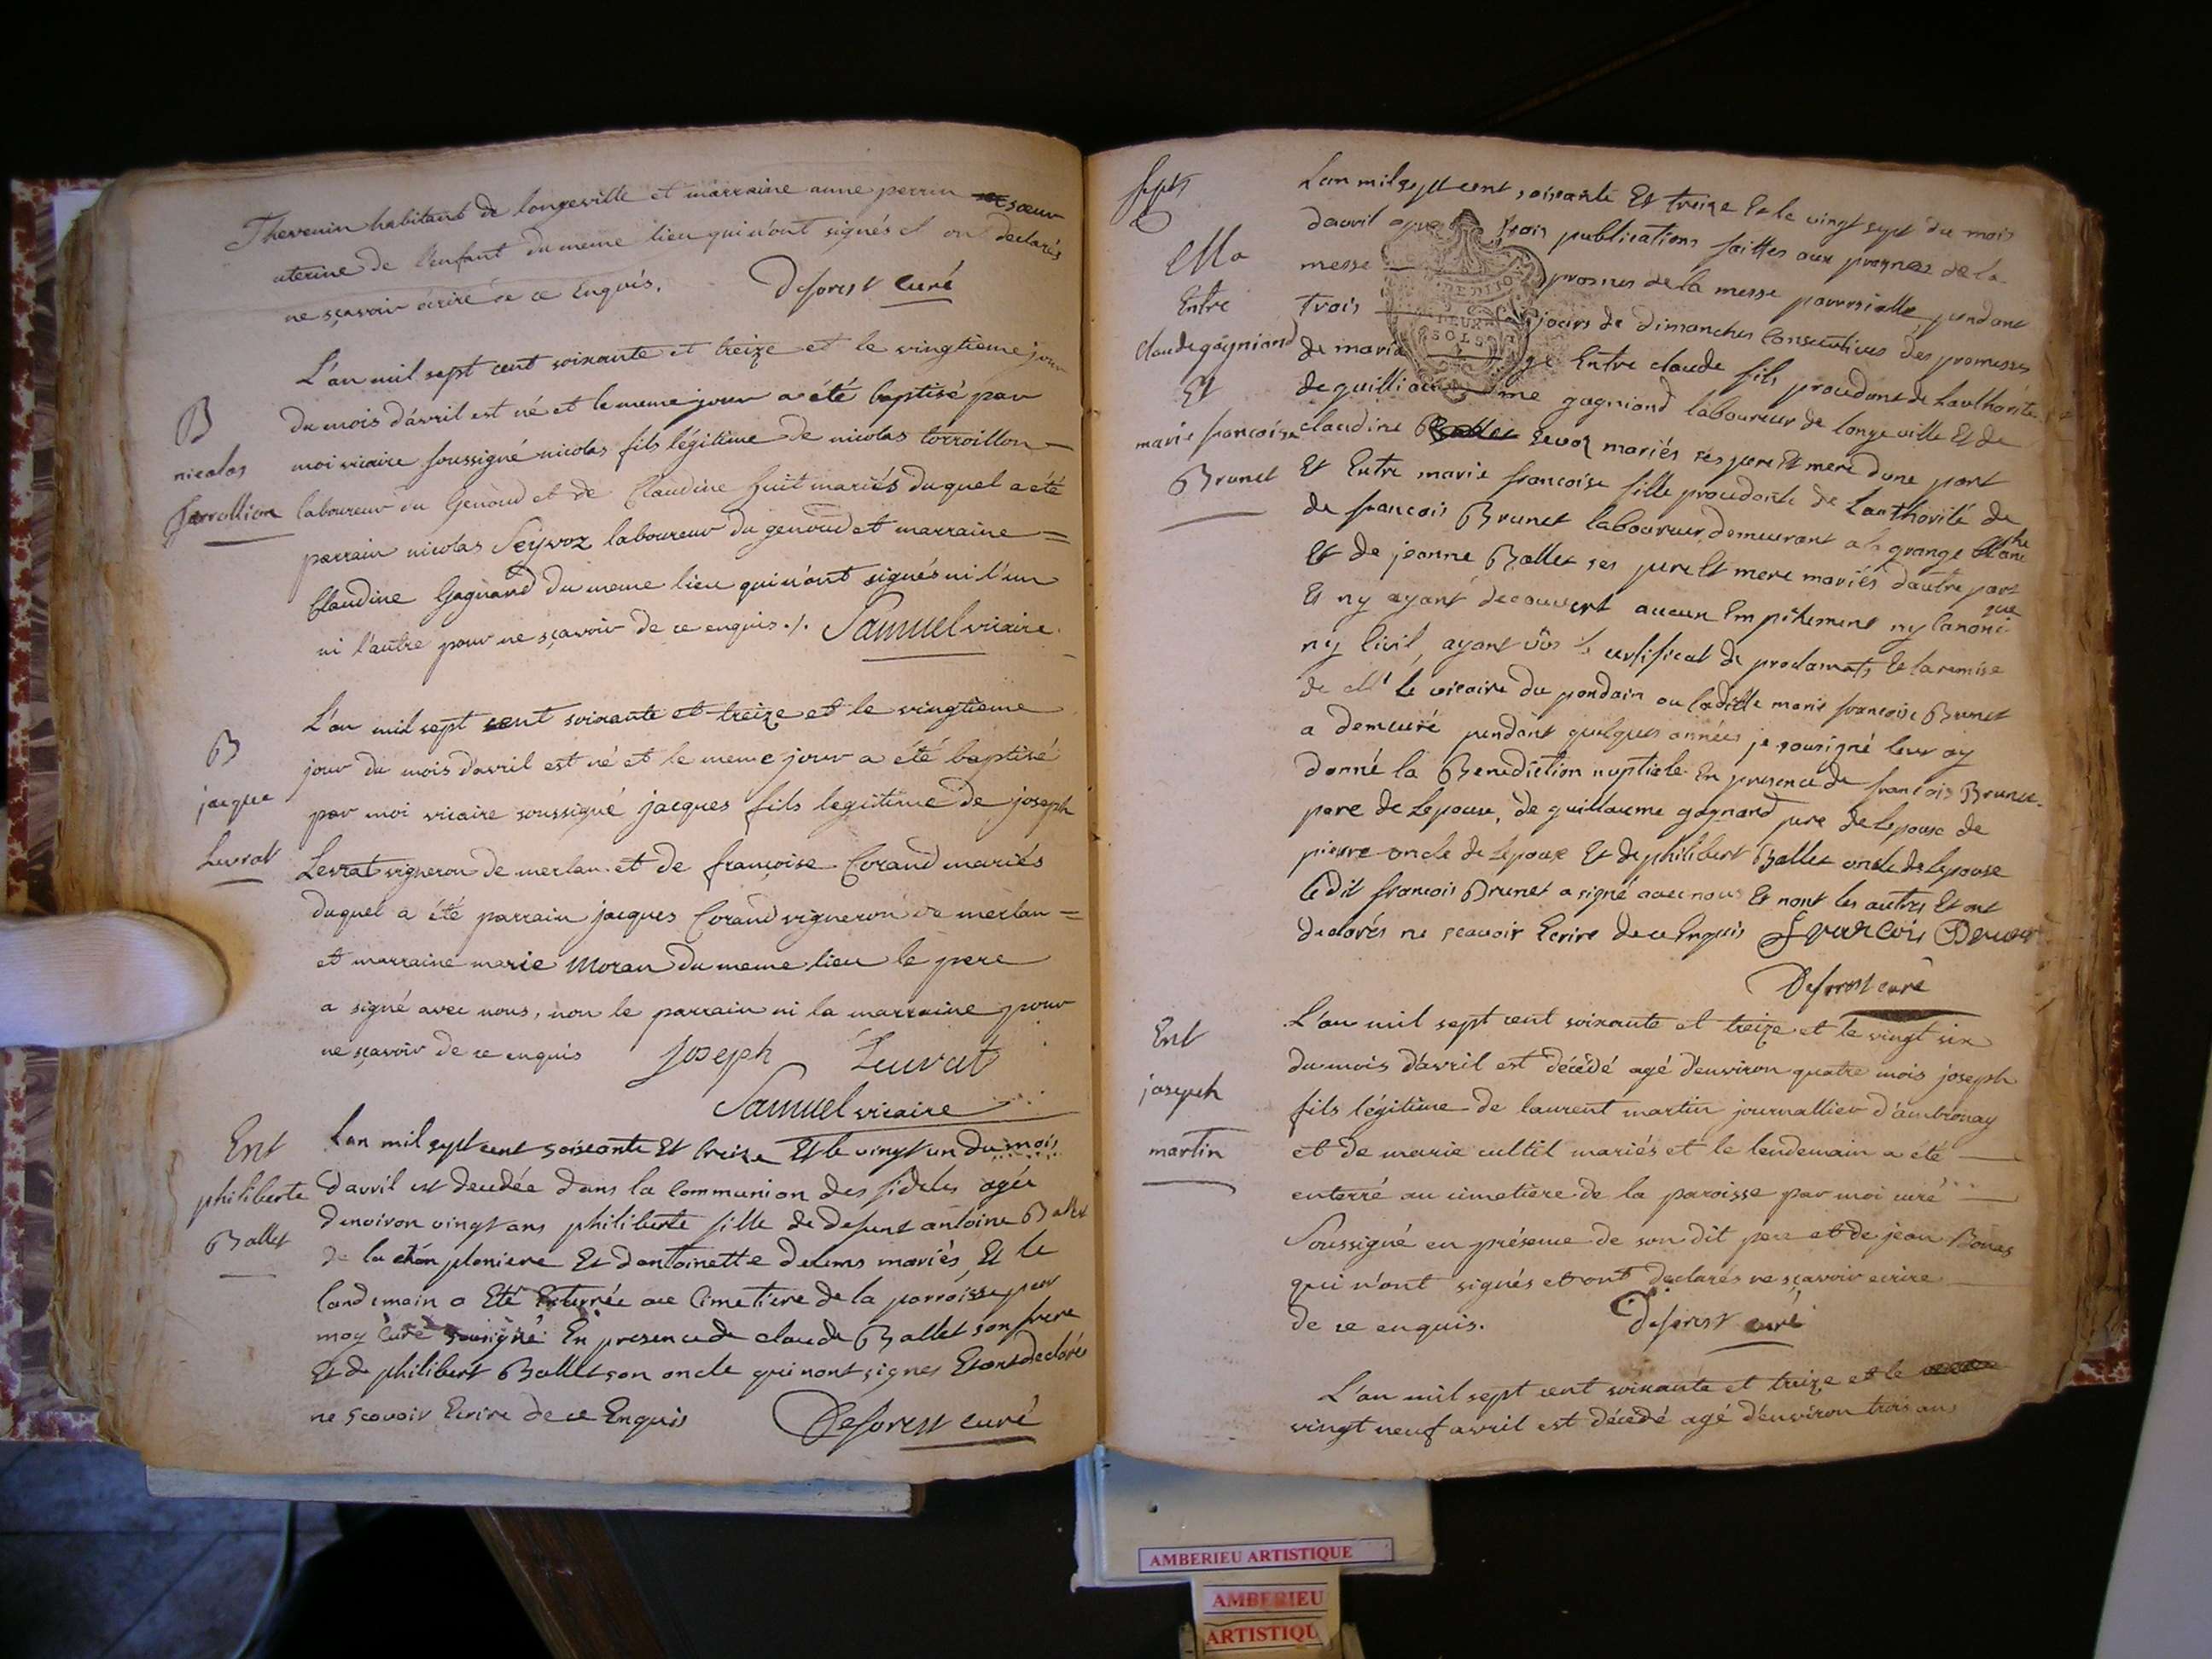 Thevenin habitant de longeville et marraine anne perrin sœur
uterine de l'enfant du meme lieu qui n'ont signés et ont declarés
ne sçavoir écrire de ce Enquis. Deforest curé
B
nicolas
L'an mil sept cent soixante et treize et le vingtieme jour
du mois d'avril est né et le meme jour a été baptisé par
moi vicaire soussigné nicolas fils légitime de nicolas torroillon
laboureur du Genoud et de Claudine huit mariés duquel a été
parrain nicolas Seyvoz laboureur du genoud et marraine
Claudine Gagnand du meme lieu qui n'ont signés ni l'un
ni l'autre pour ne sçavoir de ce enquis ./. Samuel vicaire
B
jacque
Levrat
L'an mil sept cent soixante et treize et le vingtieme
jour du mois d'avril est né et le meme jour a été baptisé
par moi vicaire soussigné jacques fils legitime de joseph
Levrat vigneron de merlan et de françoise Corand mariés
duquel a été parrain jacques Corand vigneron de merlan
et marraine marie Moran du meme lieu le pere
a signé avec nous, non le parrain ni la marraine pour
ne sçavoir de ce enquis Joseph Leuvat
Samuel vicaire
Ent
philiberte
Ballet
Lan mil sept cent soixante Et treize Et le vingt un du mois
d'avril est decedée dans la Communion des fideles agée
denviron vingt ans philiberte fille de defunt antoine Ballet
de la champloniere Et dantoinette mariés, Et le
landemain a Eté Enterrée au Cimetiere de la parroisse par
moy Curé sousigné En presence de claude Ballet son frere
Et de philibert Ballet son oncle qui nont signes Et ont declarés
ne scavoir Ecrire de ce Enquis Deforest curé
Ma
Entre
claude gagniand
Et
marie francoise
Brunet
Lan mil sept cent soixante Et treize Et le vingt sept du mois
davril apres trois publications faittes aux prosnes de la
messe prosnes de la messe parroissialle pendant
trois jours de dimanches Consecutives des promesses
de mariage Entre claude fils procedant de Lauthorité
de guilliaume gagniand laboureur de longeville Et de
claudine Levoz mariés ses pere Et mere dune part
Et Entre marie francoise fille procedante de Lauthorité de
de francois Brunet laboureur demeurant a la grange blanche
Et de jeanne Ballet ses pere Et mere mariés dautre part
Et ny ayant decouvert aucun Empêhement ny Canonique
ny Civil, ayant vûs le certificat de proclamats Et la remise
de Mr le vicaire du pondain ou laditte marie francoise Brunet
a demeuré pendant quelques années je sousigné leur ay
donné la Benediction nuptiale En presence de francois Brunet
pere de Lepouse, de guillaume gagnand pere de lepoux de
pierre oncle de Lepoux Et de philibert Ballet oncle de Lepouse
le dit francois Brunet a signé avec nous Et nont les autres Et ont
declarés ne scavoir Ecrire de ce Enquis francois Brunet
Deforest curé
Ent
joseph
martin
L'an mil sept cent soixante et treize et le vingt six
du mois d'avril est décédé agé d'environ quatre mois joseph
fils légitime de laurent martin journallier d'ambronay
et de marie cultil mariés et le lendemain a été
enterré au cimetiere de la paroisse par moi curé
Soussigné en présence de son dit pere et de jean
qui n'ont signés et ont declarés ne sçavoir ecrire
de ce enquis. Deforest curé
L'an mil sept cent soixante et treize et le
vingt neuf avril est décédé agé d'environ trois ans
DEUX
SOLS
AMBERIEU ARTISTIQUE
AMBERIEU
ARTISTIQU